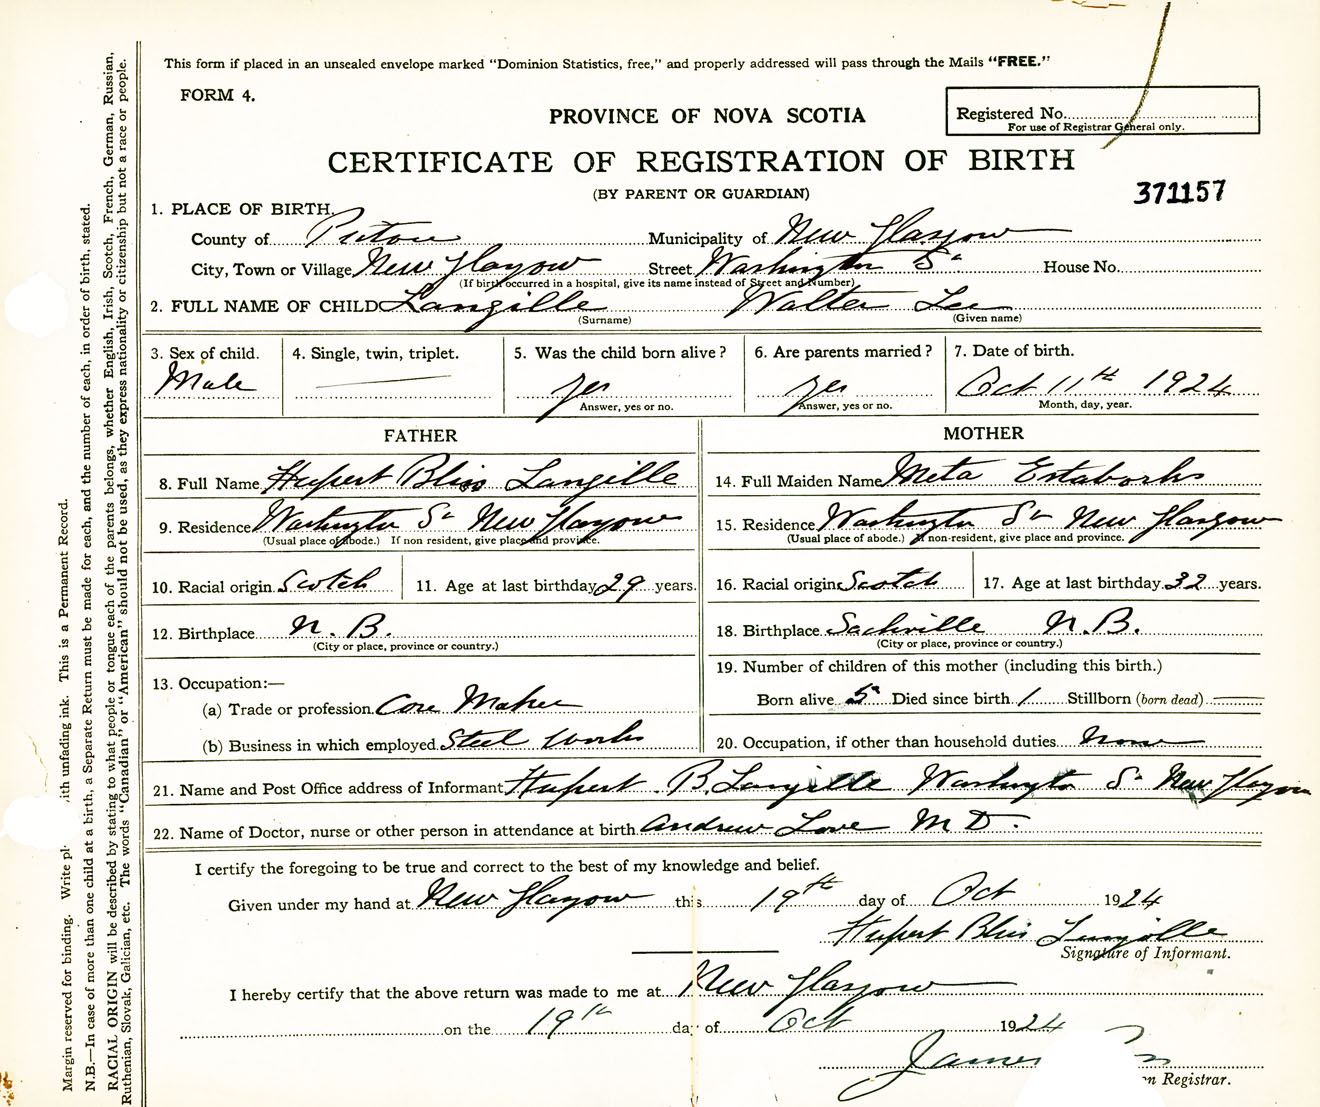 This form if placed in an unsealed envelope marked "Dominion Statistics, free," and properly addressed will pass through the Mails "FREE."
FORM 4.
PROVINCE OF NOVA SCOTIA
Registered No.
For use of Registrar General only.
CERTIFICATE OF REGISTRATION OF BIRTH
(BY PARENT OR GUARDIAN)
371157
1. PLACE OF BIRTH.
County of Pictou Municipality of New Glasgow
City, Town or Village New Glasgow Street Washington St House No.
(If birth occurred in a hospital, give its name instead of Street and Number)
2. FULL NAME OF CHILD Langille Walter Lee
(Surname) (Given name)
3. Sex of child. 4. Single, twin, triplet. 5. Was the child born alive? 6. Are parents married? 7. Date of birth.
Male yes yes Oct 11th 1924
Answer, yes or no. Answer, yes or no. Month, day, year.
FATHER MOTHER
8. Full Name Hupert Bliss Langille 14. Full Maiden Name Meta Estaborks
9. Residence Washington St New Glasgow 15. Residence Washington St New Glasgow
(Usual place of abode.) If non resident, give place and province. (Usual place of abode.) If non-resident, give place and province.
10. Racial origin Scotch 11. Age at last birthday 29 years. 16. Racial origin Scotch 17. Age at last birthday 32 years.
12. Birthplace N. B. 18. Birthplace Sackville N.B.
(City or place, province or country.) (City or place, province or country.)
13. Occupation:— 19. Number of children of this mother (including this birth.)
(a) Trade or profession Core Maker Born alive 5 Died since birth 1 Stillborn (born dead)
(b) Business in which employed Steel Works 20. Occupation, if other than household duties None
21. Name and Post Office address of Informant Hupert B. Langille Washington St New Glasgow
22. Name of Doctor, nurse or other person in attendance at birth Andrew Love M D.
I certify the foregoing to be true and correct to the best of my knowledge and belief.
Given under my hand at New Glasgow this 19th day of Oct 1924
Hupert Bliss Langille
Signature of Informant.
I hereby certify that the above return was made to me at New Glasgow
on the 19th day of Oct 1924
James
Registrar.
Margin reserved for binding. Write with unfading ink. This is a Permanent Record.
N.B.—In case of more than one child at a birth, a Separate Return must be made for each, and the number of each, in order of birth, stated.
RACIAL ORIGIN will be described by stating to what people or tongue each of the parents belongs, whether English, Irish, Scotch, French, German, Russian,
Ruthenian, Slovak, Galician, etc. The words "Canadian" or "American" should not be used, as they express nationality or citizenship but not a race or people.